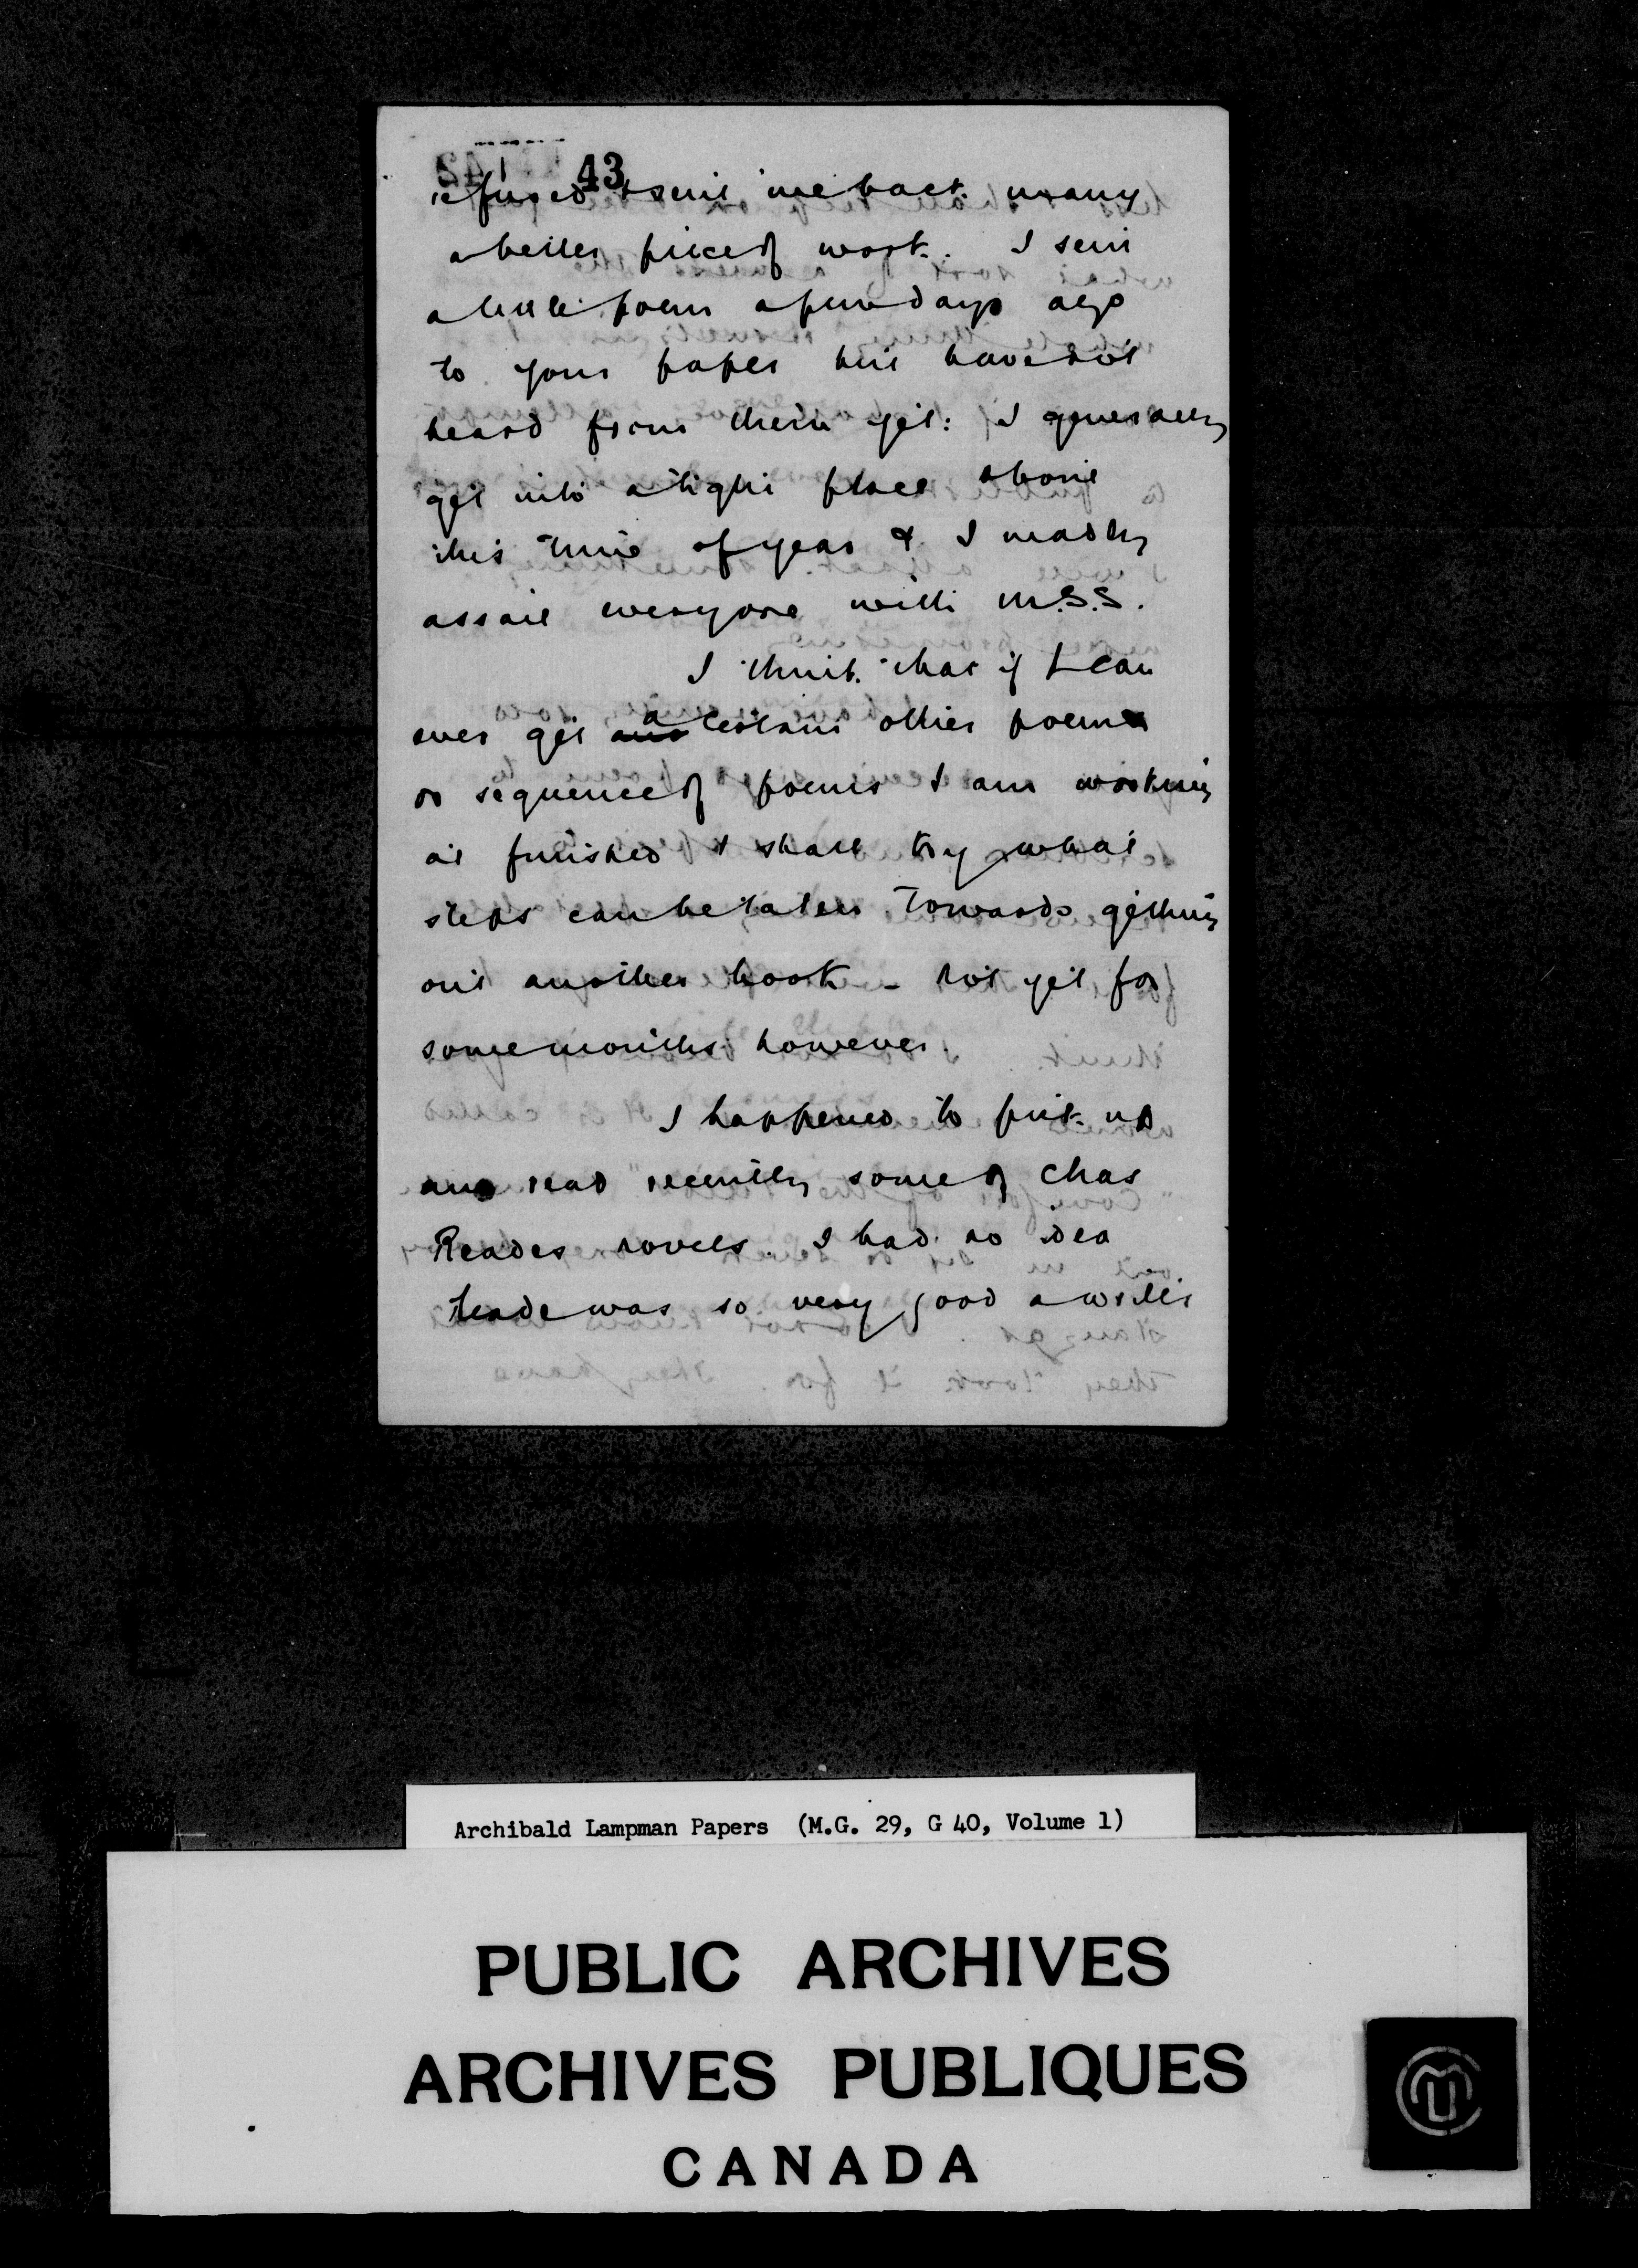 43
refused & sent me back many
a better piece of work. I sent
a little poem a few days ago
to your paper but have not
heard from them yet: I generally
get into a tight place about
this time of year & I madly
assail everyone with M.S.S.
I think that if I can
ever get a certain other poem
or sequence of poems I am working
at finished I shall try what
steps can be taken towards getting
out another book – not yet for
some months however.
I happened to pick up
and read recently some of Chas
Reades novels. I had no idea
Reade was so very good a writer
Archibald Lampman Papers (M.G. 29, G 40, Volume 1)
PUBLIC ARCHIVES
ARCHIVES PUBLIQUES
CANADA